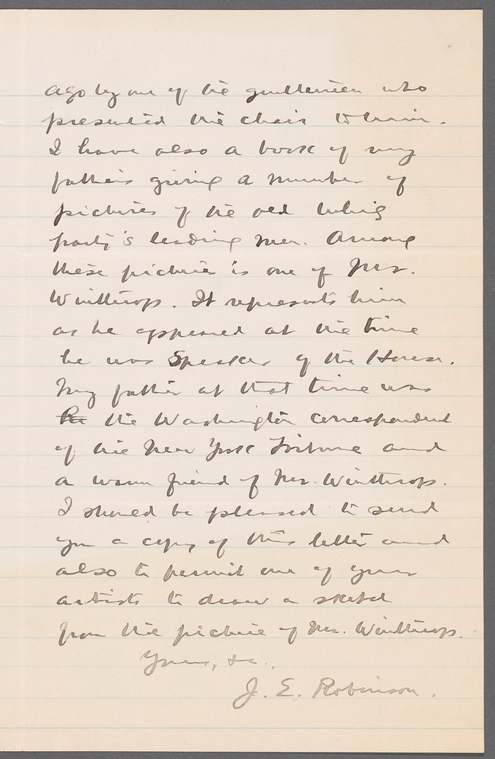 ago by one of the gentlemen who
presented the chair to him.
I have also a book of my
father's giving a number of
pictures of the old Whig
party's leading men. Among
these pictures is one of Mr.
Winthrop. It represents him
as he appeared at the time
he was Speaker of the House.
My father at that time was
the Washington correspondent
of the New York Tribune and
a warm friend of Mr. Winthrop.
I should be pleased to send
you a copy of this letter and
also to permit one of your
artists to draw a sketch
from the picture of Mr. Winthrop.
Yours, &c.,
J. E. Robinson.